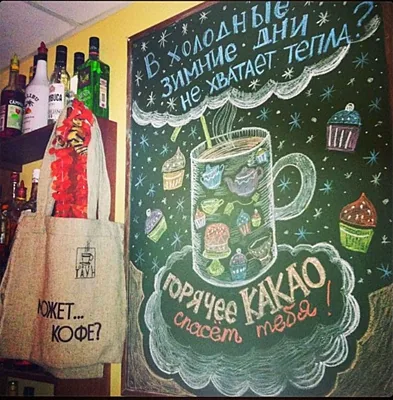 В ХОЛОДНЫЕ
ЗИМНИЕ ДНИ
НЕ ХВАТАЕТ ТЕПЛА?
ГОРЯЧЕЕ КАКАО
спасёт тебя!
МОЖЕТ...
КОФЕ?